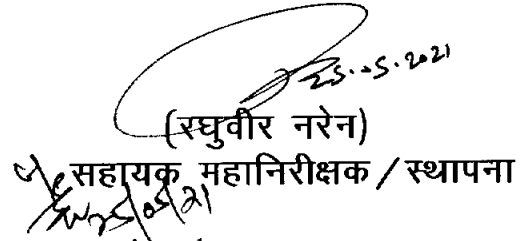 25.05.2021
(रघुवीर नरेन)
सहायक महानिरीक्षक / स्थापना
25/05/21